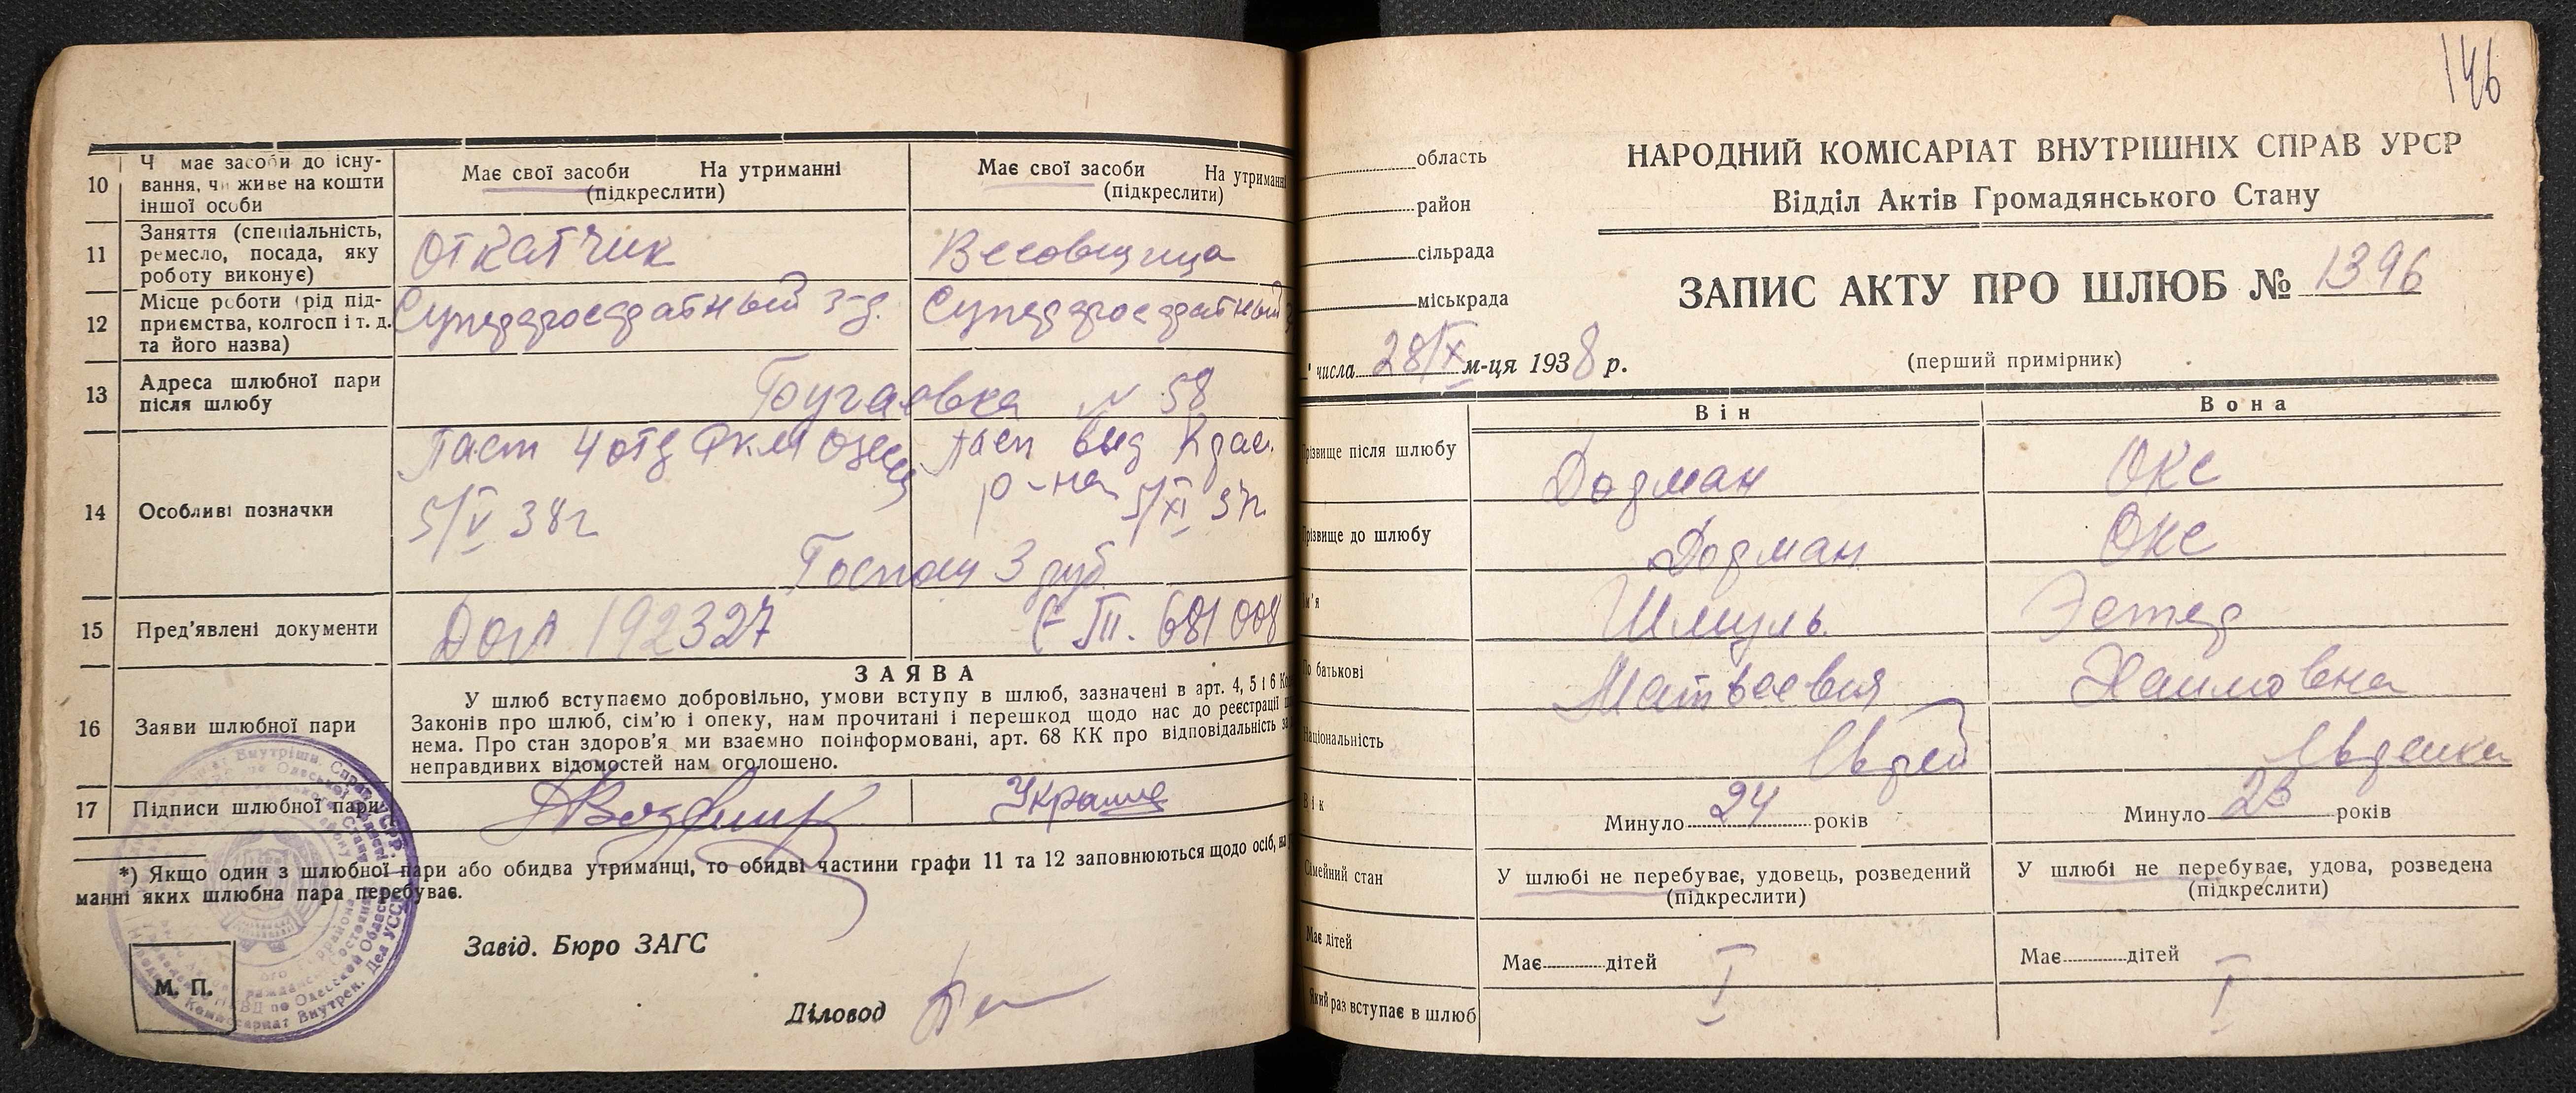 10
Ч має засоби до існу-
вання, чи живе на кошти
іншої особи
Має свої засоби На утриманні
(підкреслити)
Має свої засоби На утриманні
(підкреслити)
11
Заняття (спеціальність,
ремесло, посада, яку
роботу виконує)
Откатчик
Весовщица
12
Місце роботи (рід під-
приємства, колгосп і т. д.
та його назва)
Суперфосфатный з-д.
Суперфосфатный
13
Адреса шлюбної пари
після шлюбу
Бугаевка № 58
14
Особливі позначки
Пасп 4 отд РКМ Одессы
5/V 38г
Пасп выд Крас.
р-на 5/XI 37г.
Госпош 3 руб
15
Пред'явлені документи
192327
III. 681008
16
Заяви шлюбної пари
ЗАЯВА
У шлюб вступаємо добровільно, умови вступу в шлюб, зазначені в арт. 4, 5 і 6
Законів про шлюб, сім'ю і опеку, нам прочитані і перешкод щодо нас до реєстрації
нема. Про стан здоров'я ми взаємно поінформовані, арт. 68 КК про відповідальність за
неправдивих відомостей нам оголошено.
17
Підписи шлюбної пари
*) Якщо один з шлюбної пари або обидва утриманці, то обидві частини графи 11 та 12 заповнюються щодо осіб, на
манні яких шлюбна пара перебуває.
Завід. Бюро ЗАГС
М. П.
Діловод
146
область
район
сільрада
міськрада
НАРОДНИЙ КОМІСАРІАТ ВНУТРІШНІХ СПРАВ УРСР
Відділ Актів Громадянського Стану
ЗАПИС АКТУ ПРО ШЛЮБ № 1396
(перший примірник)
" числа 28/IX м-ця 1938 р.
Він
Вона
Прізвище після шлюбу
Дорман
Окс
Прізвище до шлюбу
Дорман
Окс
Ім'я
Шмуль
Эстер
По батькові
Матвеевич
Хаимовна
Національність
Еврей
Еврейка
Вік
Минуло 24 років
Минуло 23 років
Сімейний стан
У шлюбі не перебуває, удовець, розведений
(підкреслити)
У шлюбі не перебуває, удова, розведена
(підкреслити)
Має дітей
Має дітей
Має дітей
Який раз вступає в шлюб
I
I